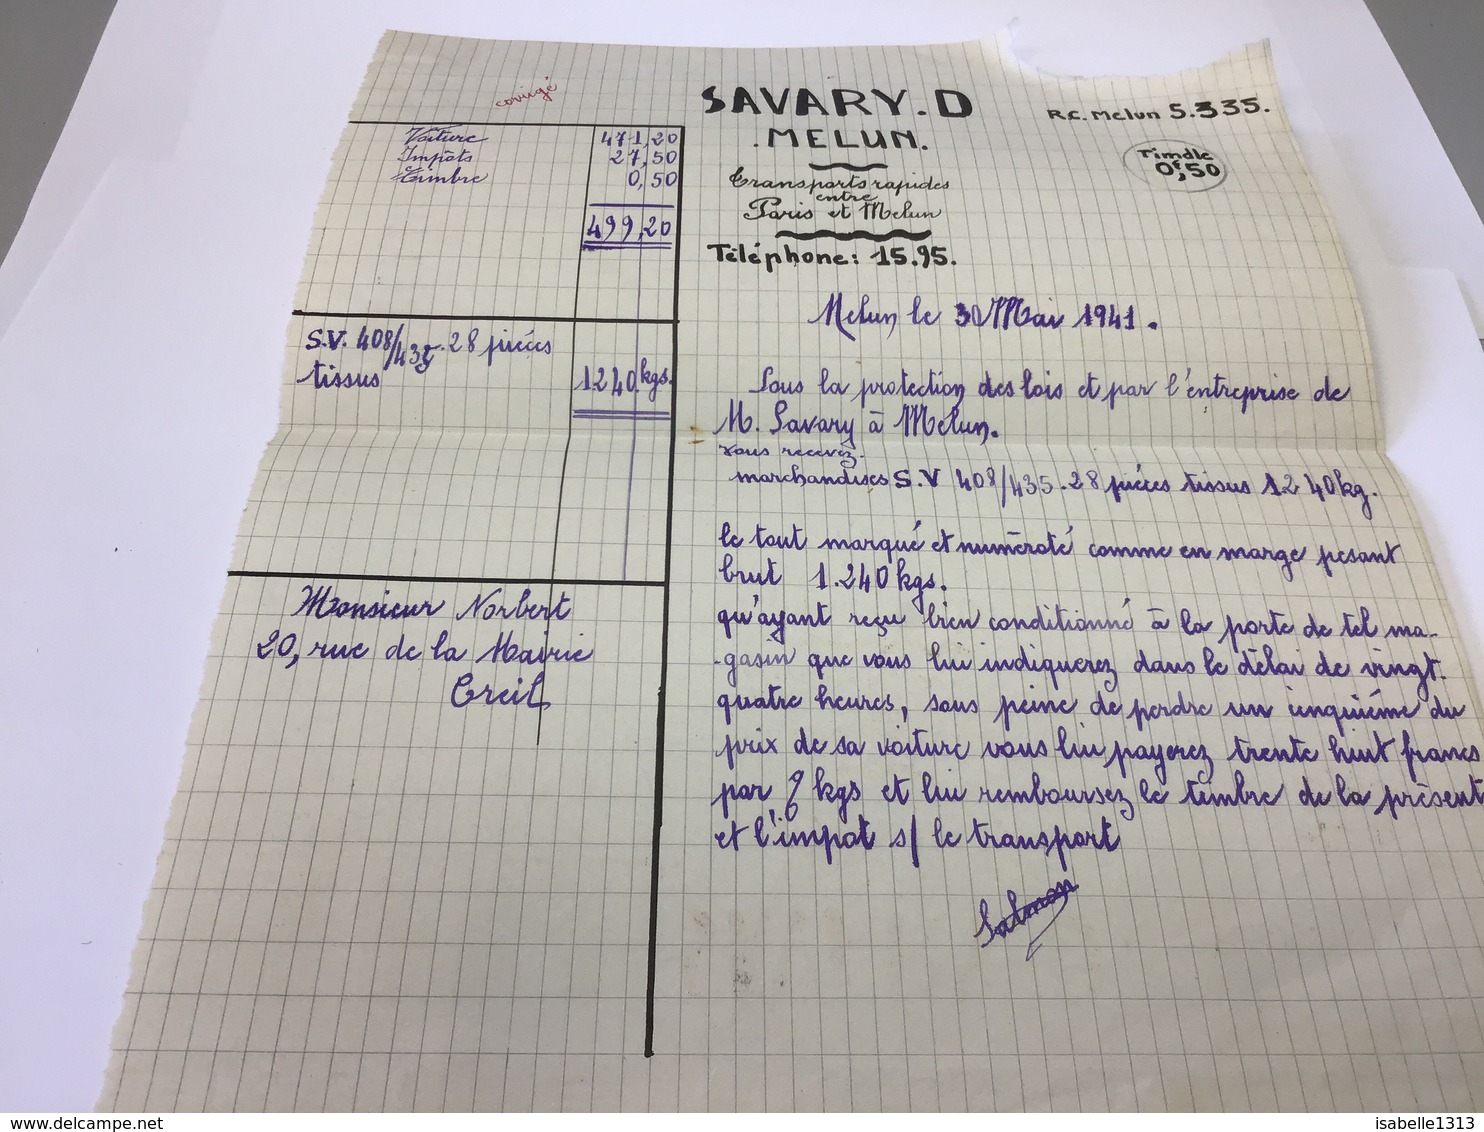 corrigé
SAVARY. D
MELUN.
R.C. Melun 5.335.
Timdle
0f,50
Transports rapides
entre
Paris et Melun
Téléphone: 15.95.
Voiture 471,20
Impôts 27,50
Timbre 0,50
499,20
S.V. 408/435. 28 piéces
tissus 1240 kgs.
Monsieur Norbert
20, rue de la Mairie
Creil
Melun le 30 Mai 1941.
Sous la protection des lois et par l'entreprise de
M. Savary à Melun.
vous recevez.
marchandises S.V 408/435. 28 piéces tissus 1240kg.
le tout marqué et numéroté comme en marge pesant
brut 1.240 kgs.
qu'ayant reçu bien conditionné à la porte de tel ma-
-gasin que vous lui indiquerez dans le délai de vingt-
quatre heures, sous peine de perdre un cinquiéme du
prix de sa voiture vous lui payerez trente huit francs
par % kgs et lui remboursez le timbre de la présent
et l'impot s/ le transport
Salmon
delcampe.net
isabelle1313